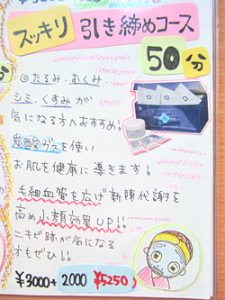 スッキリ 引き締めコース
50分
◎たるみ・むくみ・
シミ・くすみが
気になる方へおすすめ!
炭酸ガスを使い
お肌を健康に導きます!
毛細血管を広げ新陳代謝を
高め小顔効果UP!!
ニキビ跡が気になる
方もぜひ!!
¥3000+2000 ¥5250